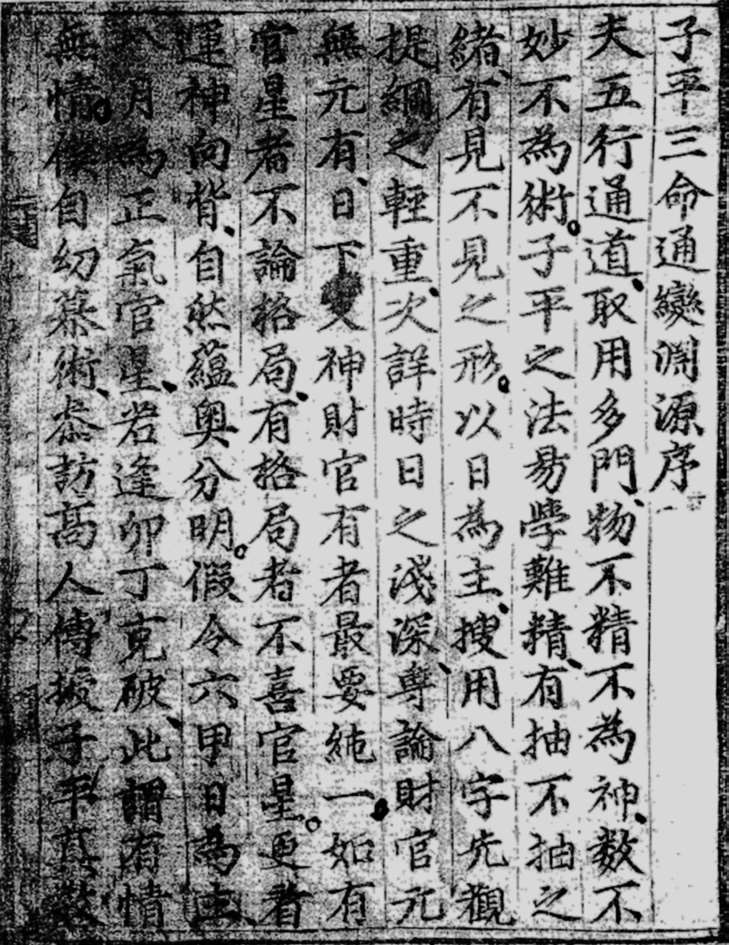 子平三命通變淵源序
夫五行通道、取用多門、物不精不為神、数不
妙不為術。子平之法易學難精、有抽不抽之
緒、有見不見之形。以日為主、搜用八字先觀
提綱之輕重、次詳時日之淺深、專論財官元
無元有、日下支神財官有者最要純一、如有
官星者不論格局、有格局者不喜官星。更看
運神向背、自然蘊奥分明。假令六甲日為主、
八月為正氣官星、若逢卯丁克破、此謂有情
無情。僕自幼慕術、恭訪高人傳授子平真数